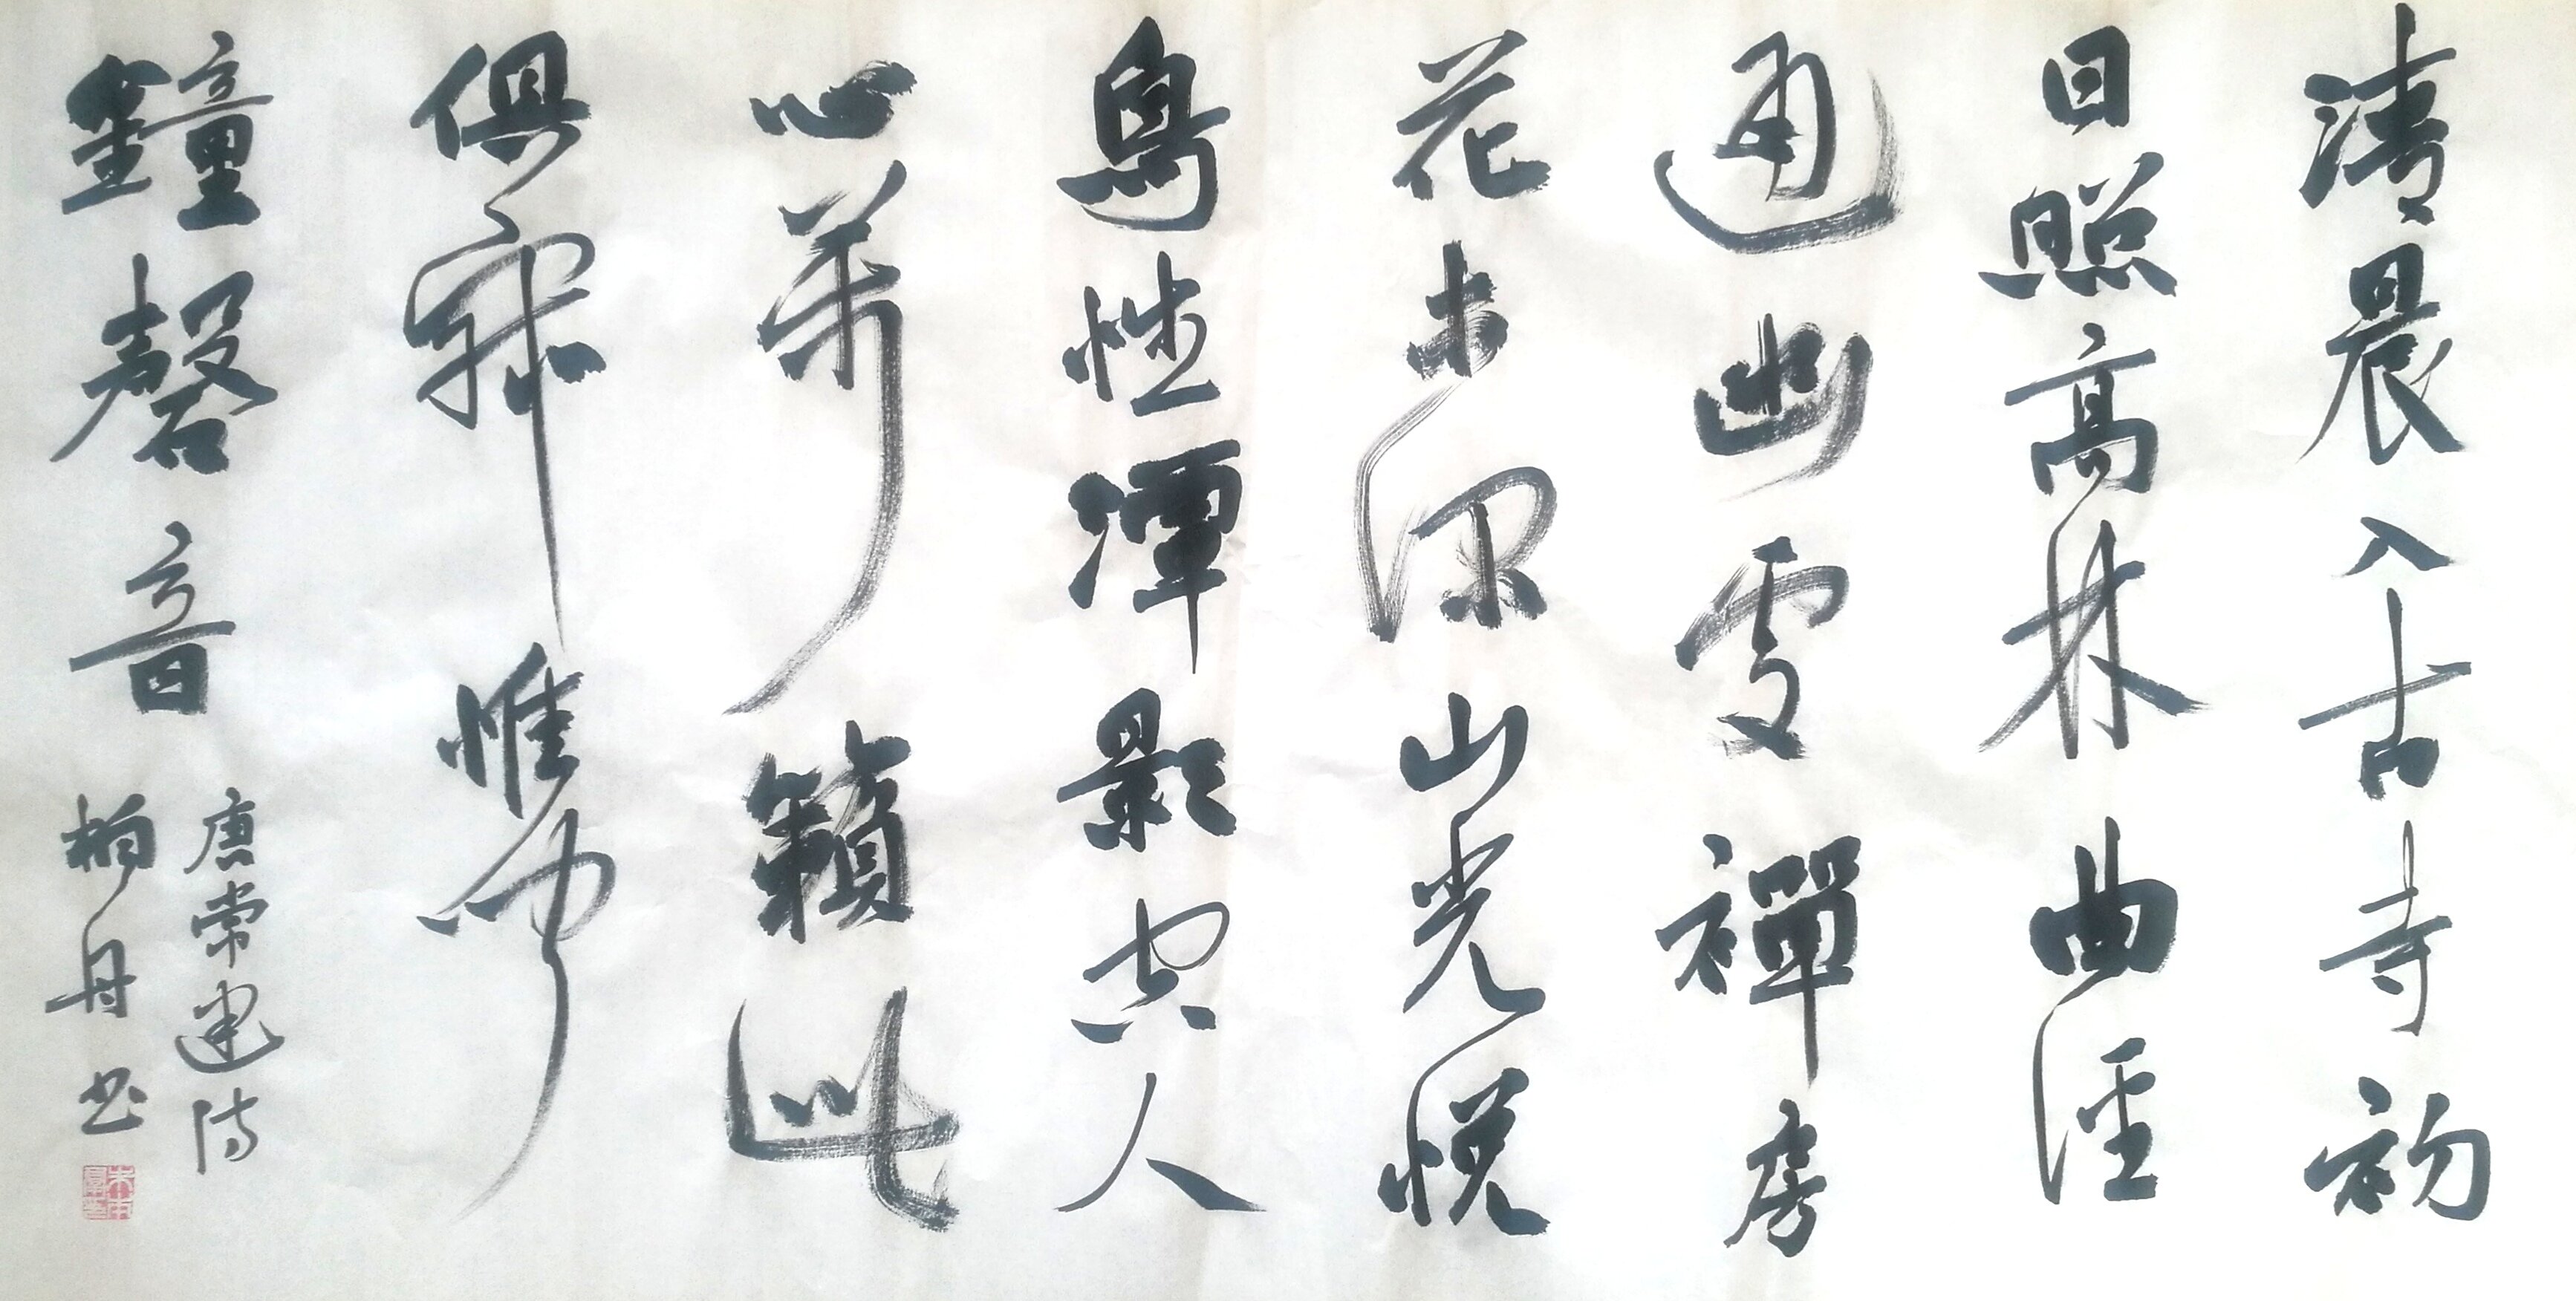 清晨入古寺初
日照高林曲徑
通幽處禪房
花木深山光悅
鳥性潭影空人
心萬籟此
俱寂惟聞
鐘磬音
唐常建诗
柳舟书